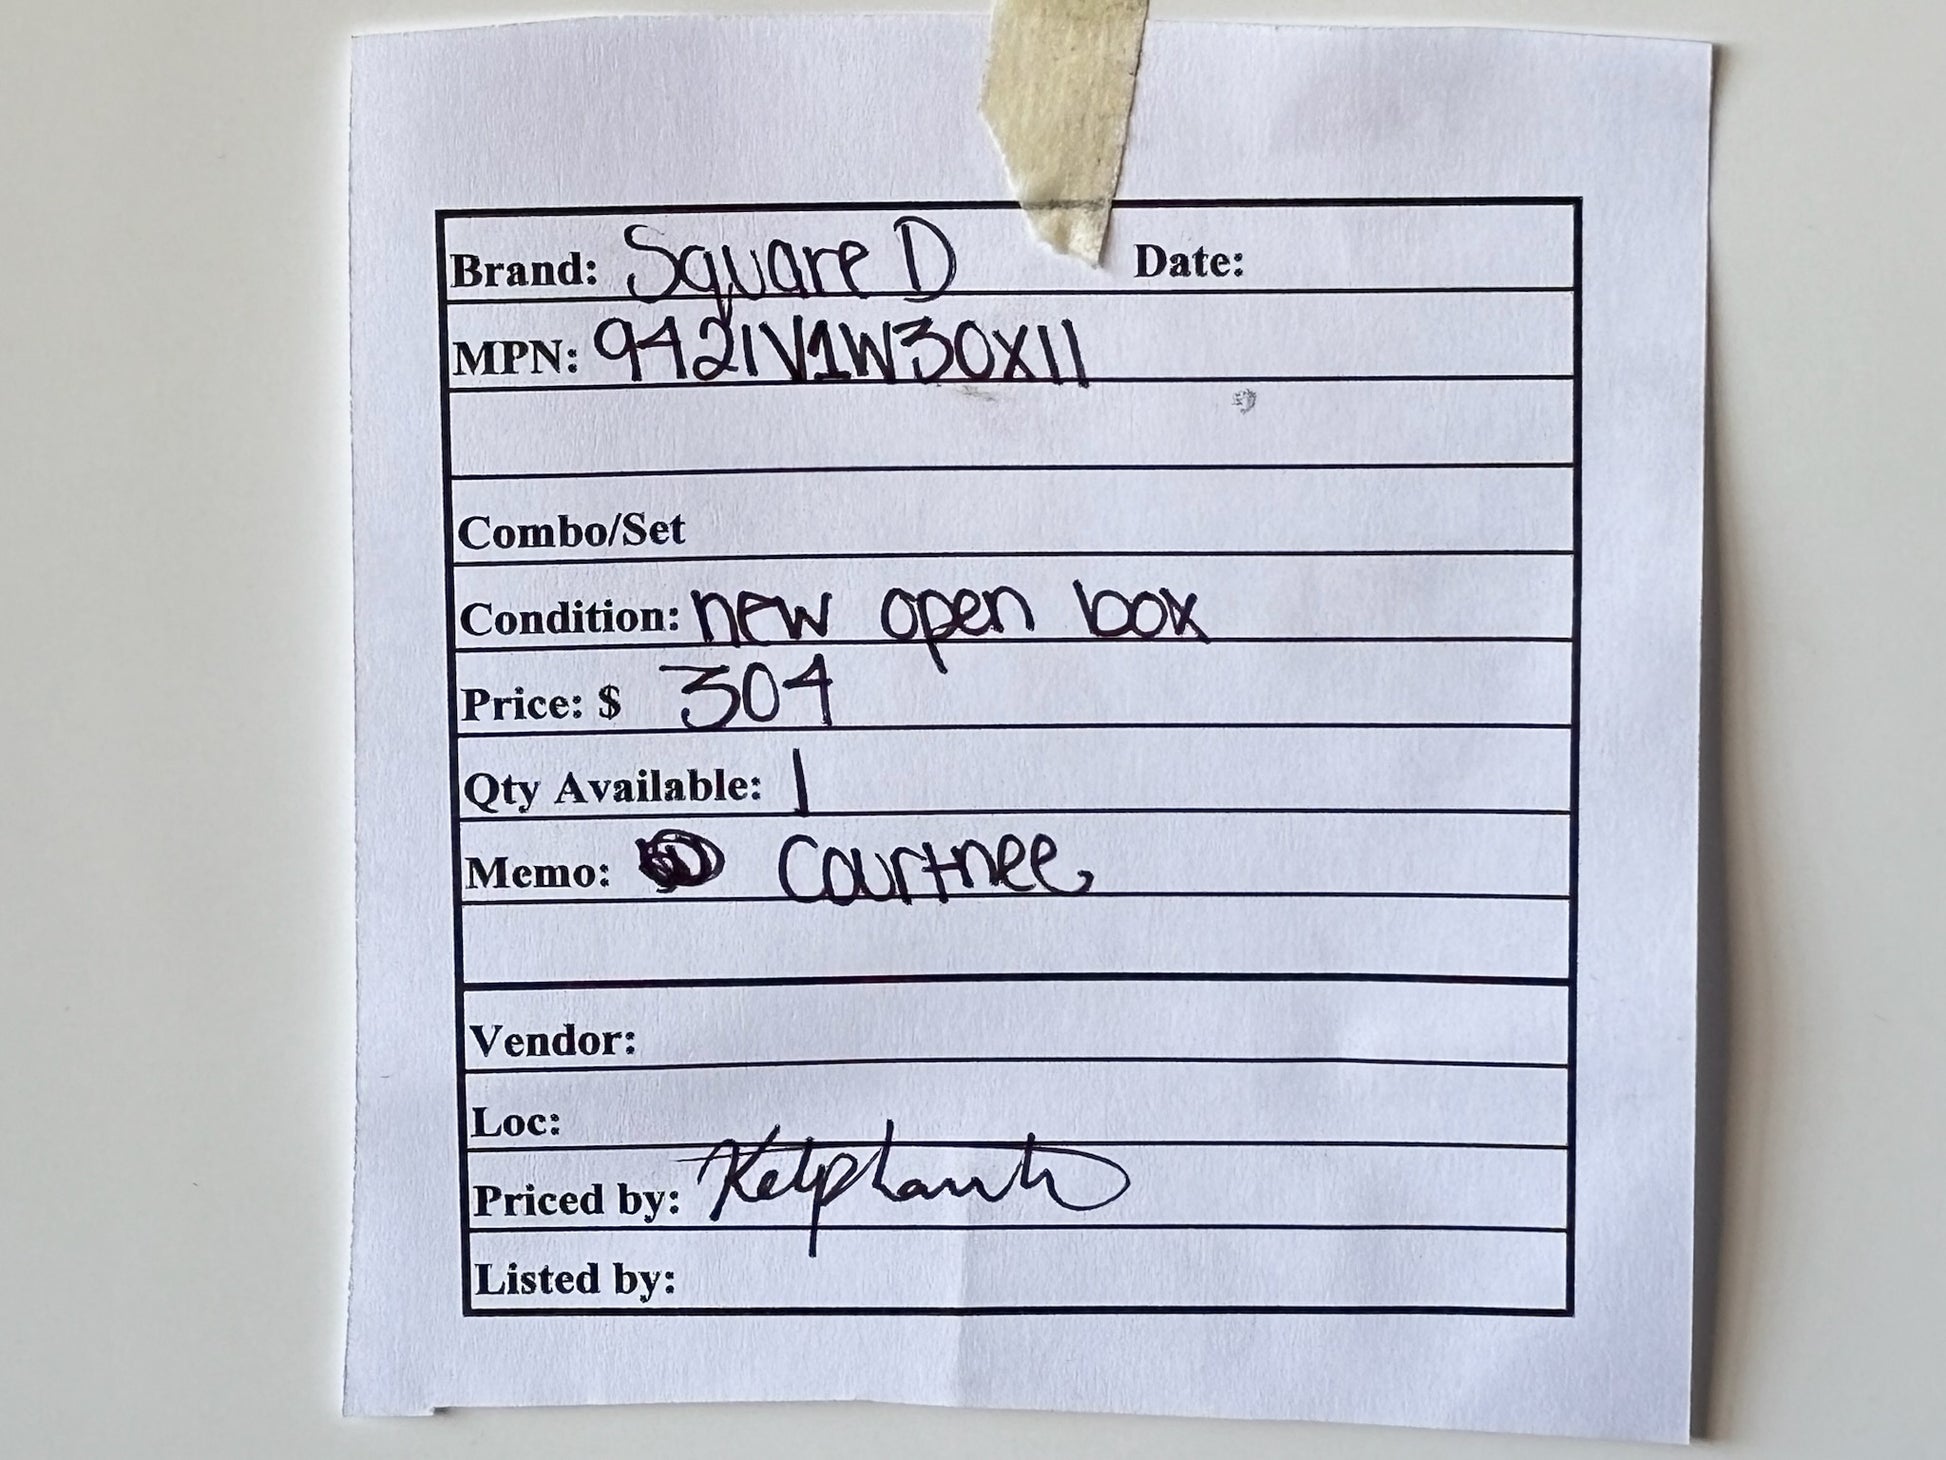 Brand: Square D Date:
MPN: 9421V1W30X11
Combo/Set
Condition: new open box
Price: $ 304
Qty Available: 1
Memo: Courtnee
Vendor:
Loc:
Priced by:
Listed by: